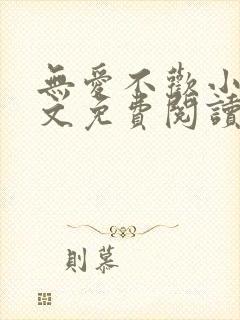 無愛不歡小
文免費閱讀
則慕